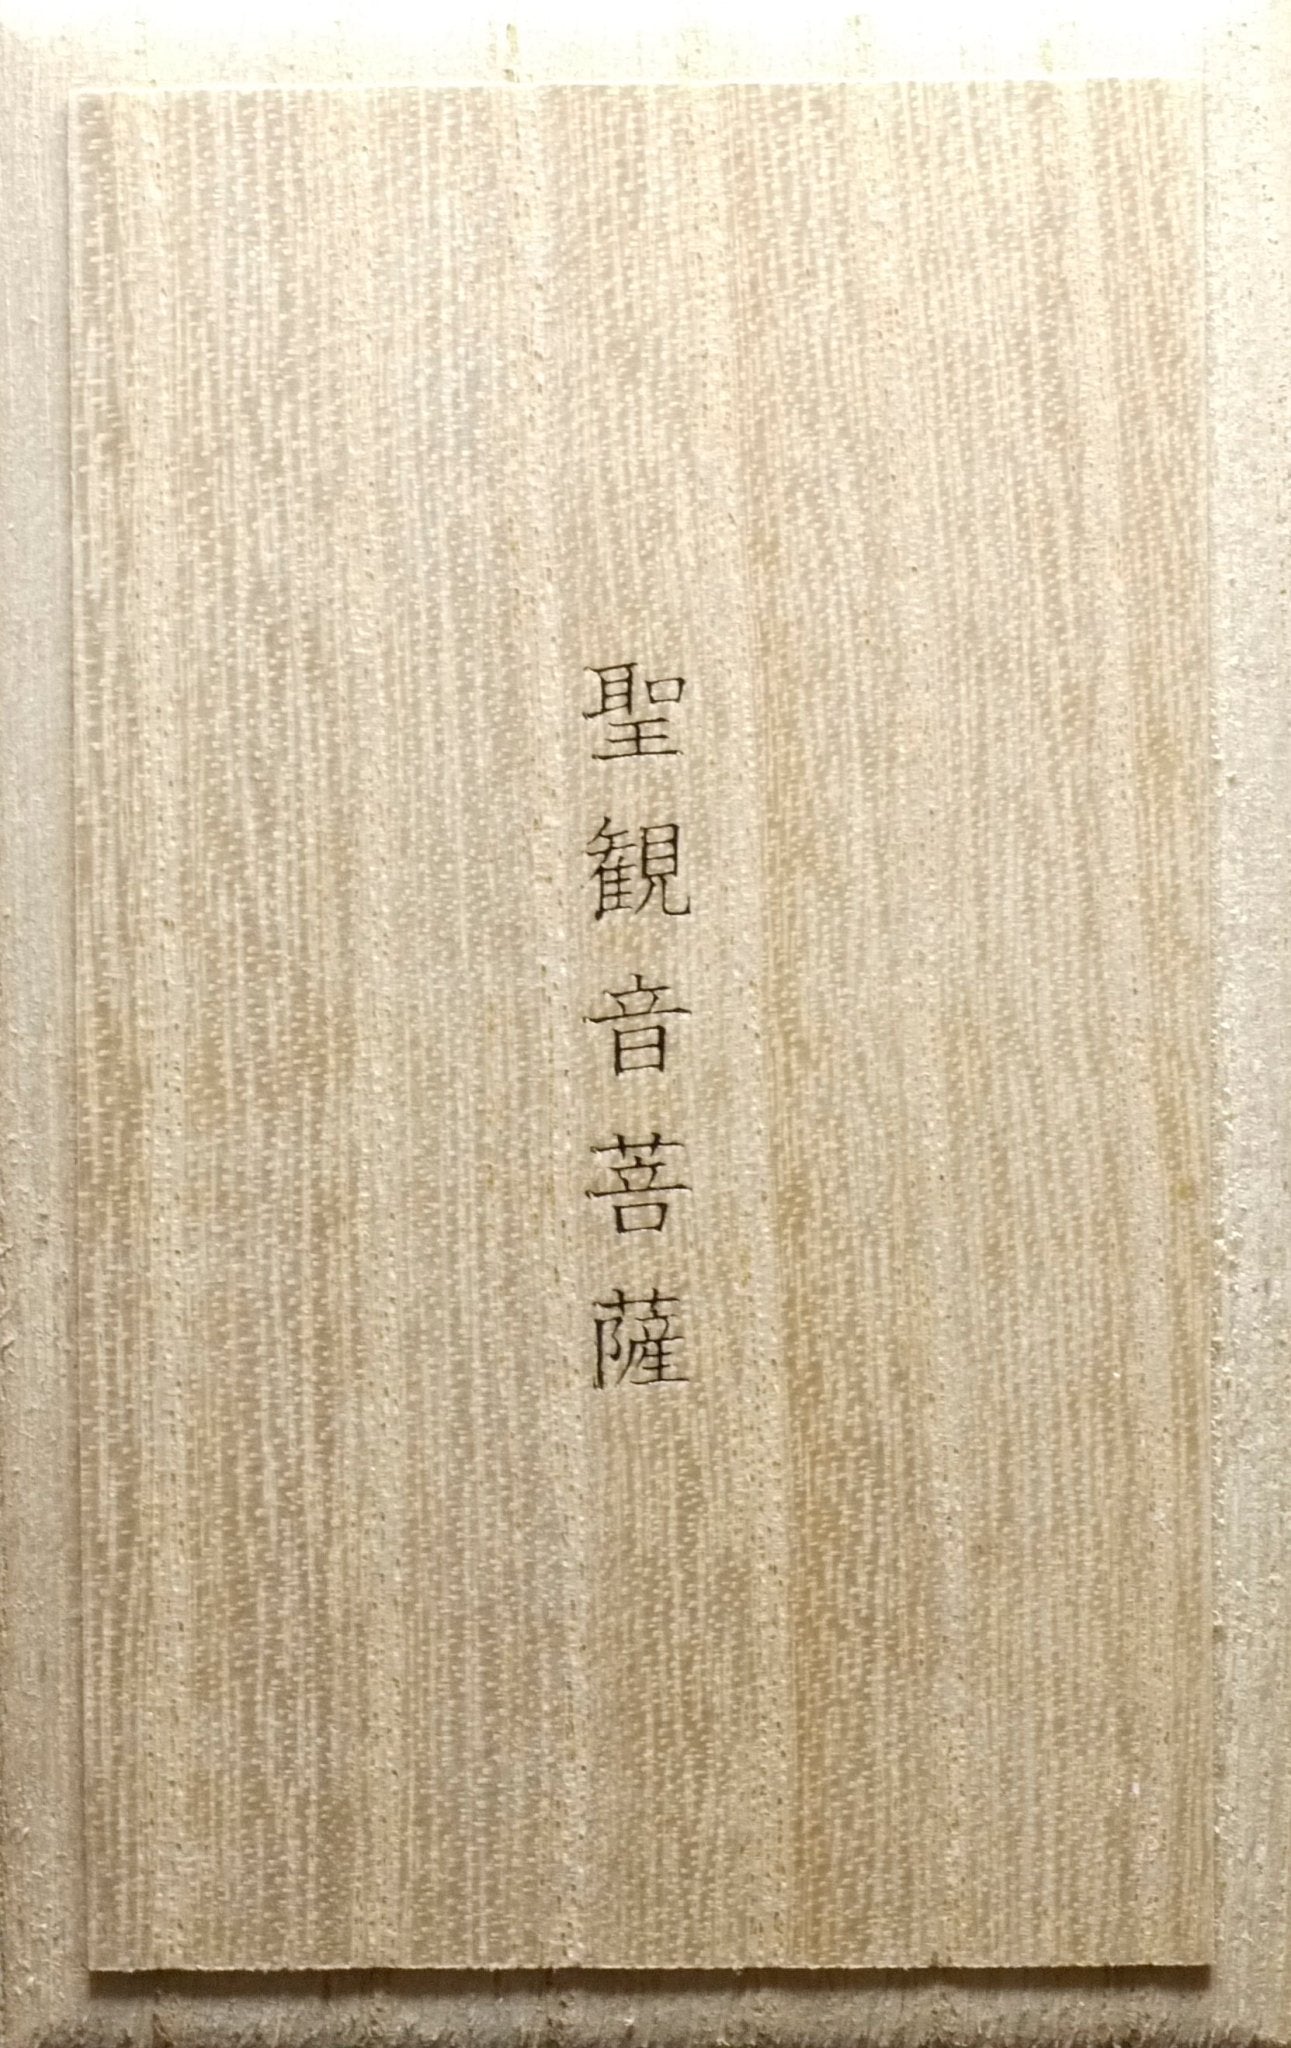 聖観音菩薩